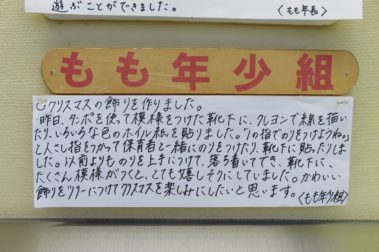 遊ぶことができました。
〈もも年長〉
もも年少組
○クリスマスの飾りを作りました。
昨日、タンポを使って模様をつけた靴下に、クレヨンで線を描い
たり、いろいろな色のホイル紙を貼りました。"1の指でのりをつけようね"
と人さし指をつかって保育者と一緒にのりをつけたり、靴下に貼ったりしま
した。以前よりものりを上手につけて、落ち着いてでき、靴下に、
たくさん模様がつくと、とても嬉しそうにしていました。かわいい
飾りをツリーにつけてクリスマスを楽しみにしたいと思います。
〈もも年少組〉